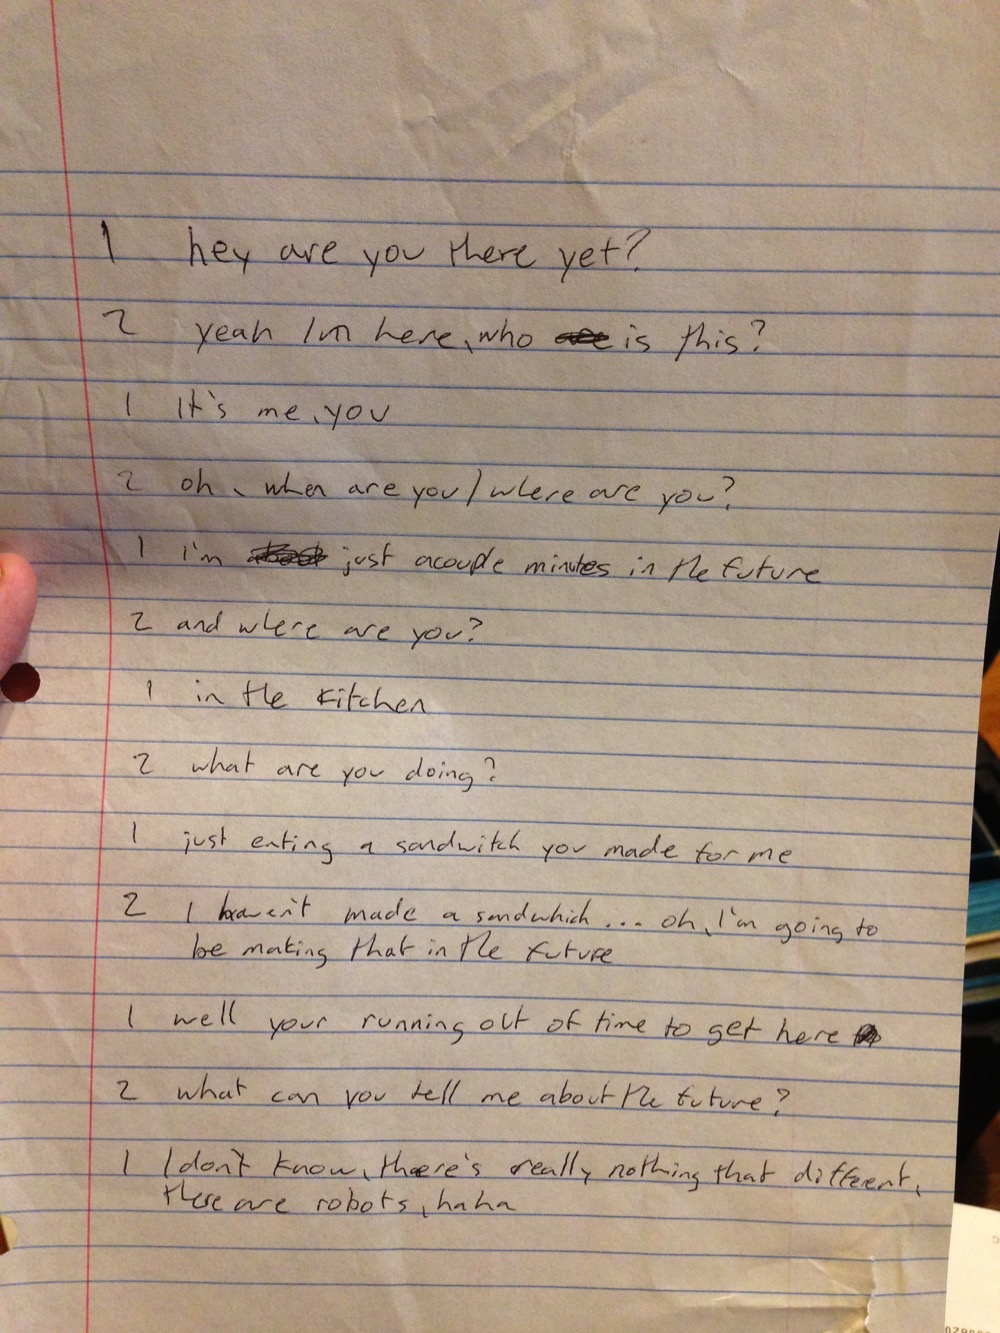 1 hey are you there yet?
2 yeah I'm here, who is this?
1 It's me, you
2 oh, when are you / where are you?
1 i'm just acouple minutes in the future
2 and where are you?
1 in the kitchen
2 what are you doing?
1 just eating a sandwitch you made for me
2 I haven't made a sandwhich... oh, I'm going to
be making that in the future
1 well your running out of time to get here
2 what can you tell me about the future?
1 I don't know, there's really nothing that different,
there are robots, haha